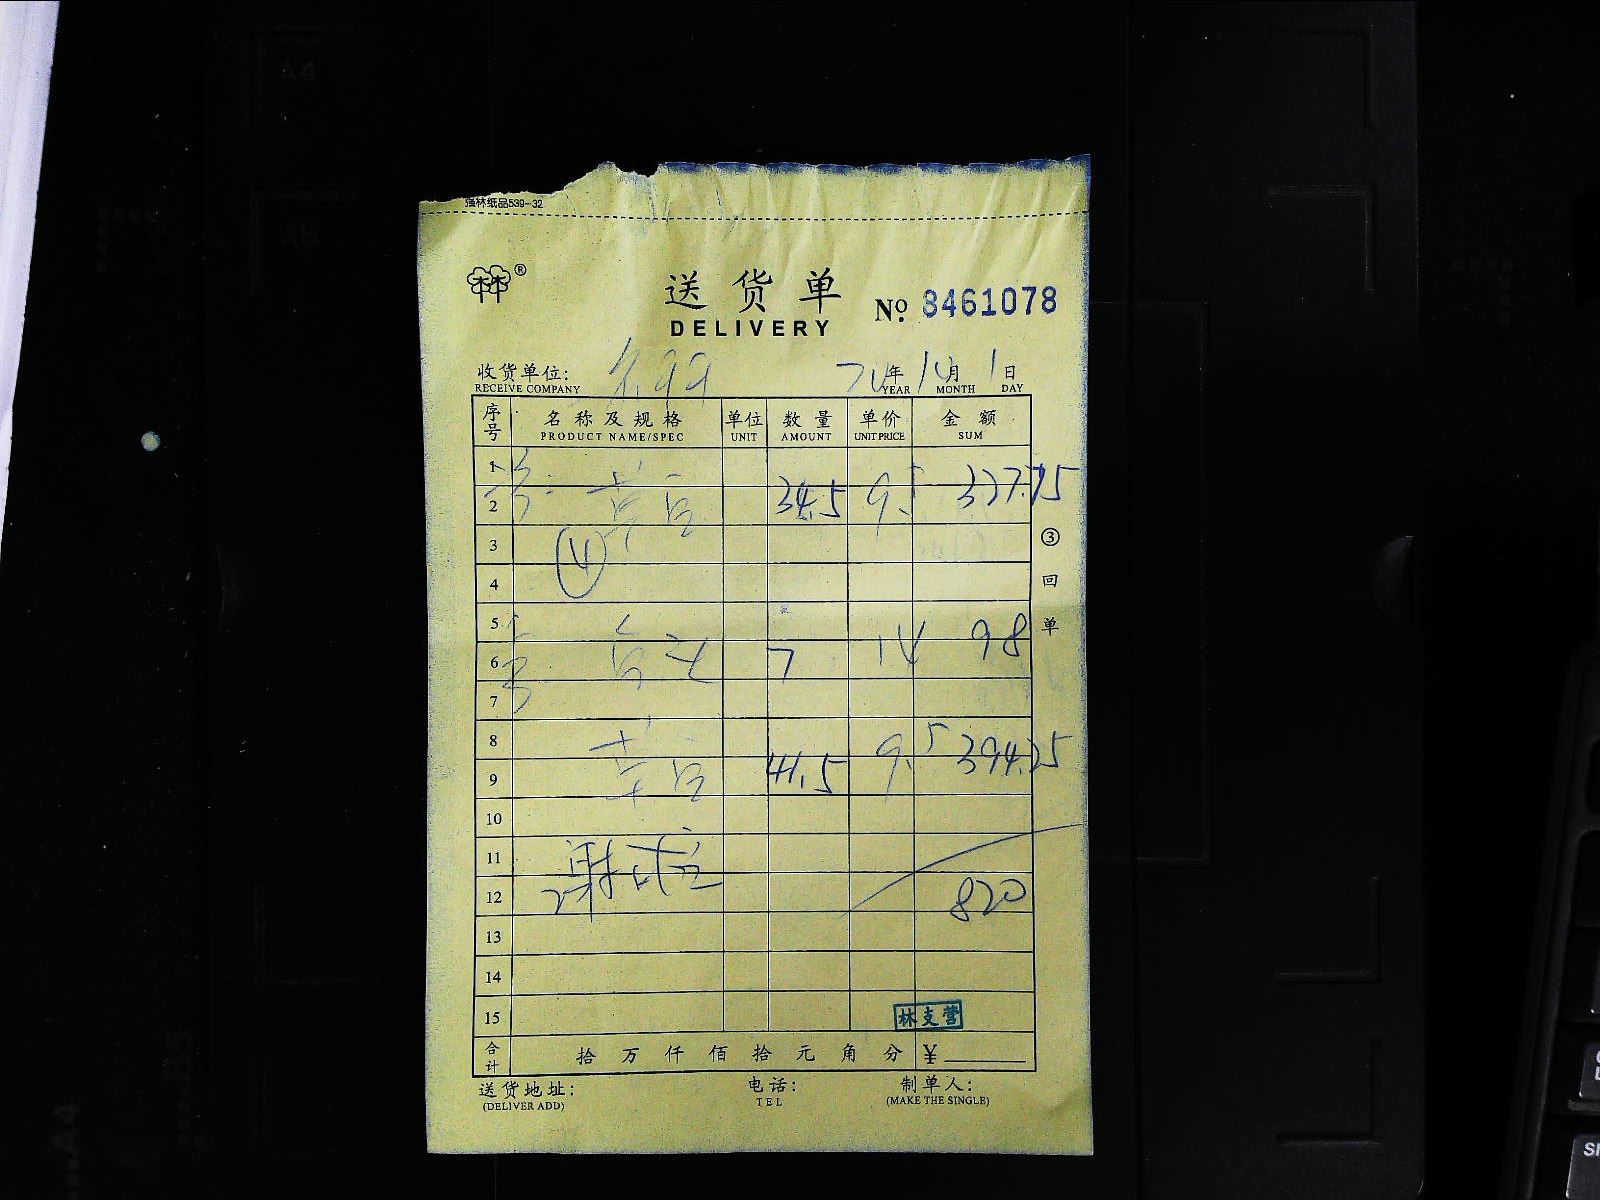 强林纸品539-32
林®
送货单
DELIVERY
№ 8461078
收货单位:
RECEIVE COMPANY
年 月 1日
YEAR MONTH DAY
序号 名称及规格 单位 数量 单价 金额
PRODUCT NAME/SPEC UNIT AMOUNT UNIT PRICE SUM
1
2 34.5 9.5 327.75
3 ④
4
5
6 7 14 98
7
8
9 41.5 9.5 394.25
10
11
12 820
13
14
15
林支营
合计 拾 万 仟 佰 拾 元 角 分 ¥
③回单
送货地址: 电话: 制单人:
(DELIVER ADD) TEL (MAKE THE SINGLE)
A4
A5
B5
A4